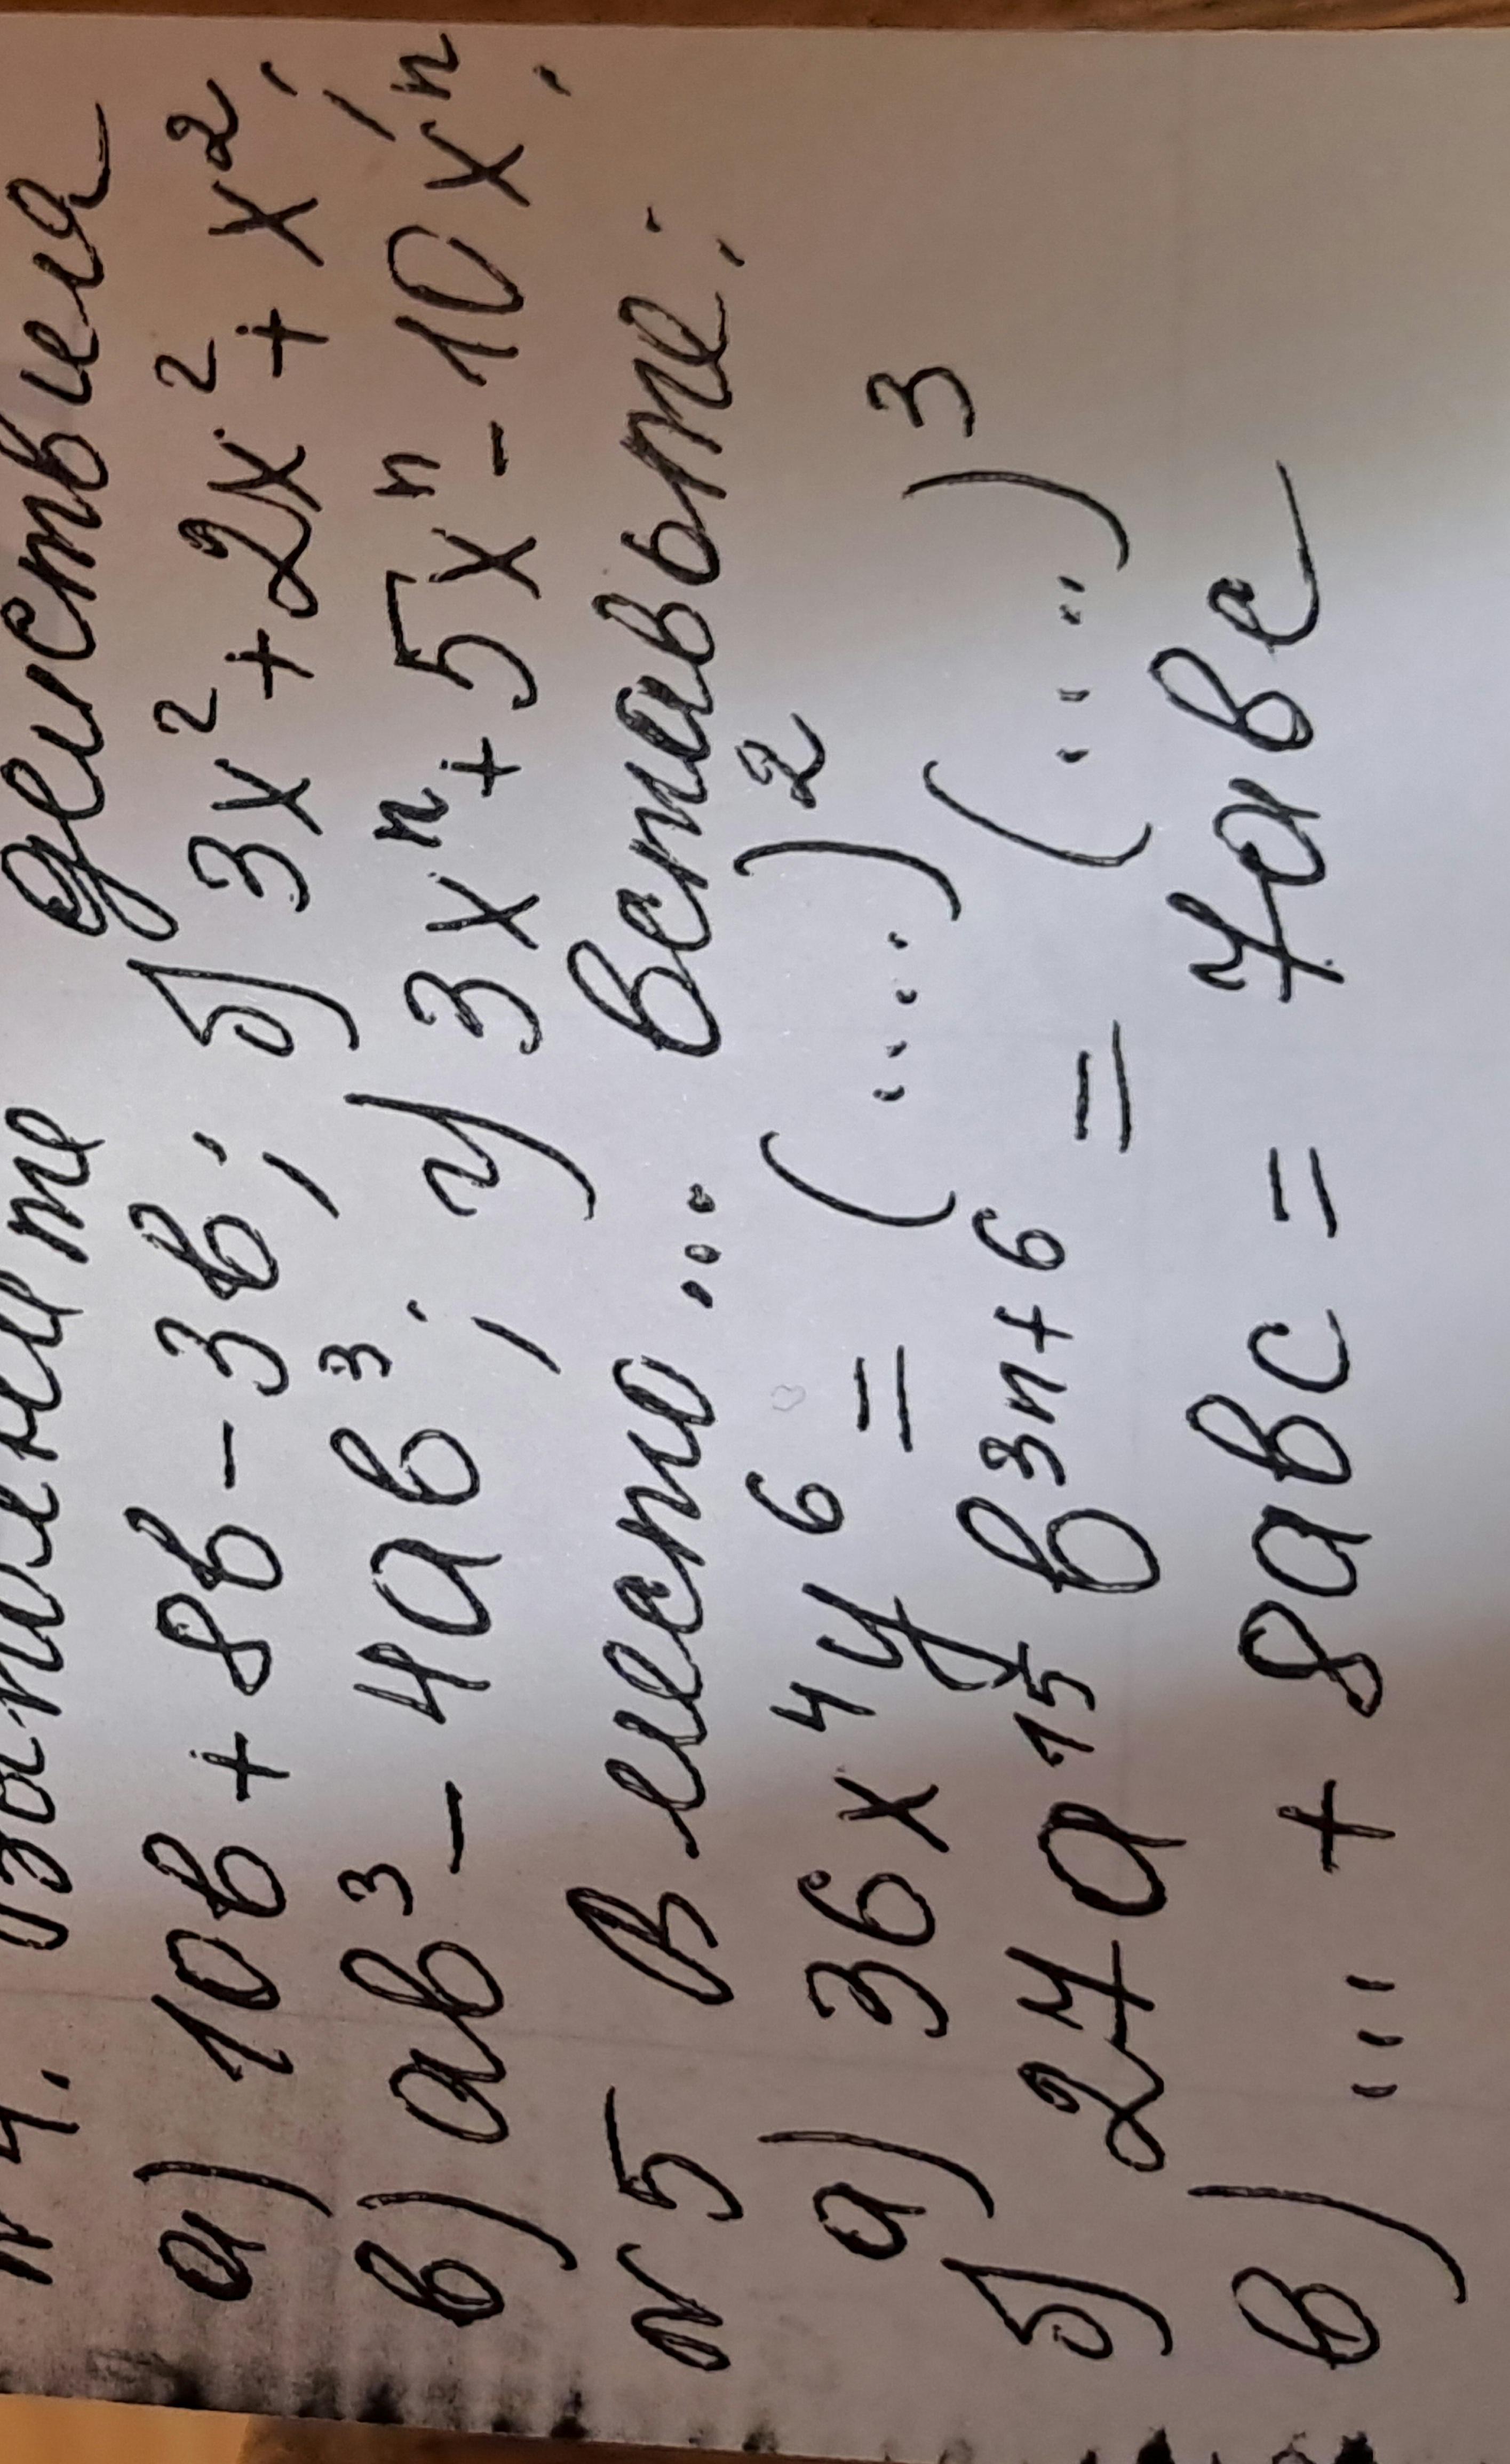 № 4. Выполните действия
а) 10в + 8в - 3в; б) 3x² + 2x² + x²;
в) ав³ - 4ав³; г) 3xⁿ + 5xⁿ - 10xⁿ.
№ 5 Вместо ... вставьте:
а) 36x⁴y⁶ = (....)²
б) 27a¹⁵в³ⁿ⁺⁶ = (....)³
в) ... + 8авс = 7авс